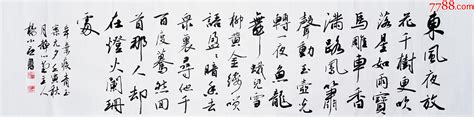 東風夜放
花千樹更吹
落星如雨寶
馬雕車香
滿路鳳簫
聲動玉壺光
轉一夜魚龍
舞蛾兒雪
柳黃金縷笑
語盈盈暗香去
衆裏尋他千
百度驀然回
首那人却
在燈火闌珊
處
辛棄疾青玉
7788.com